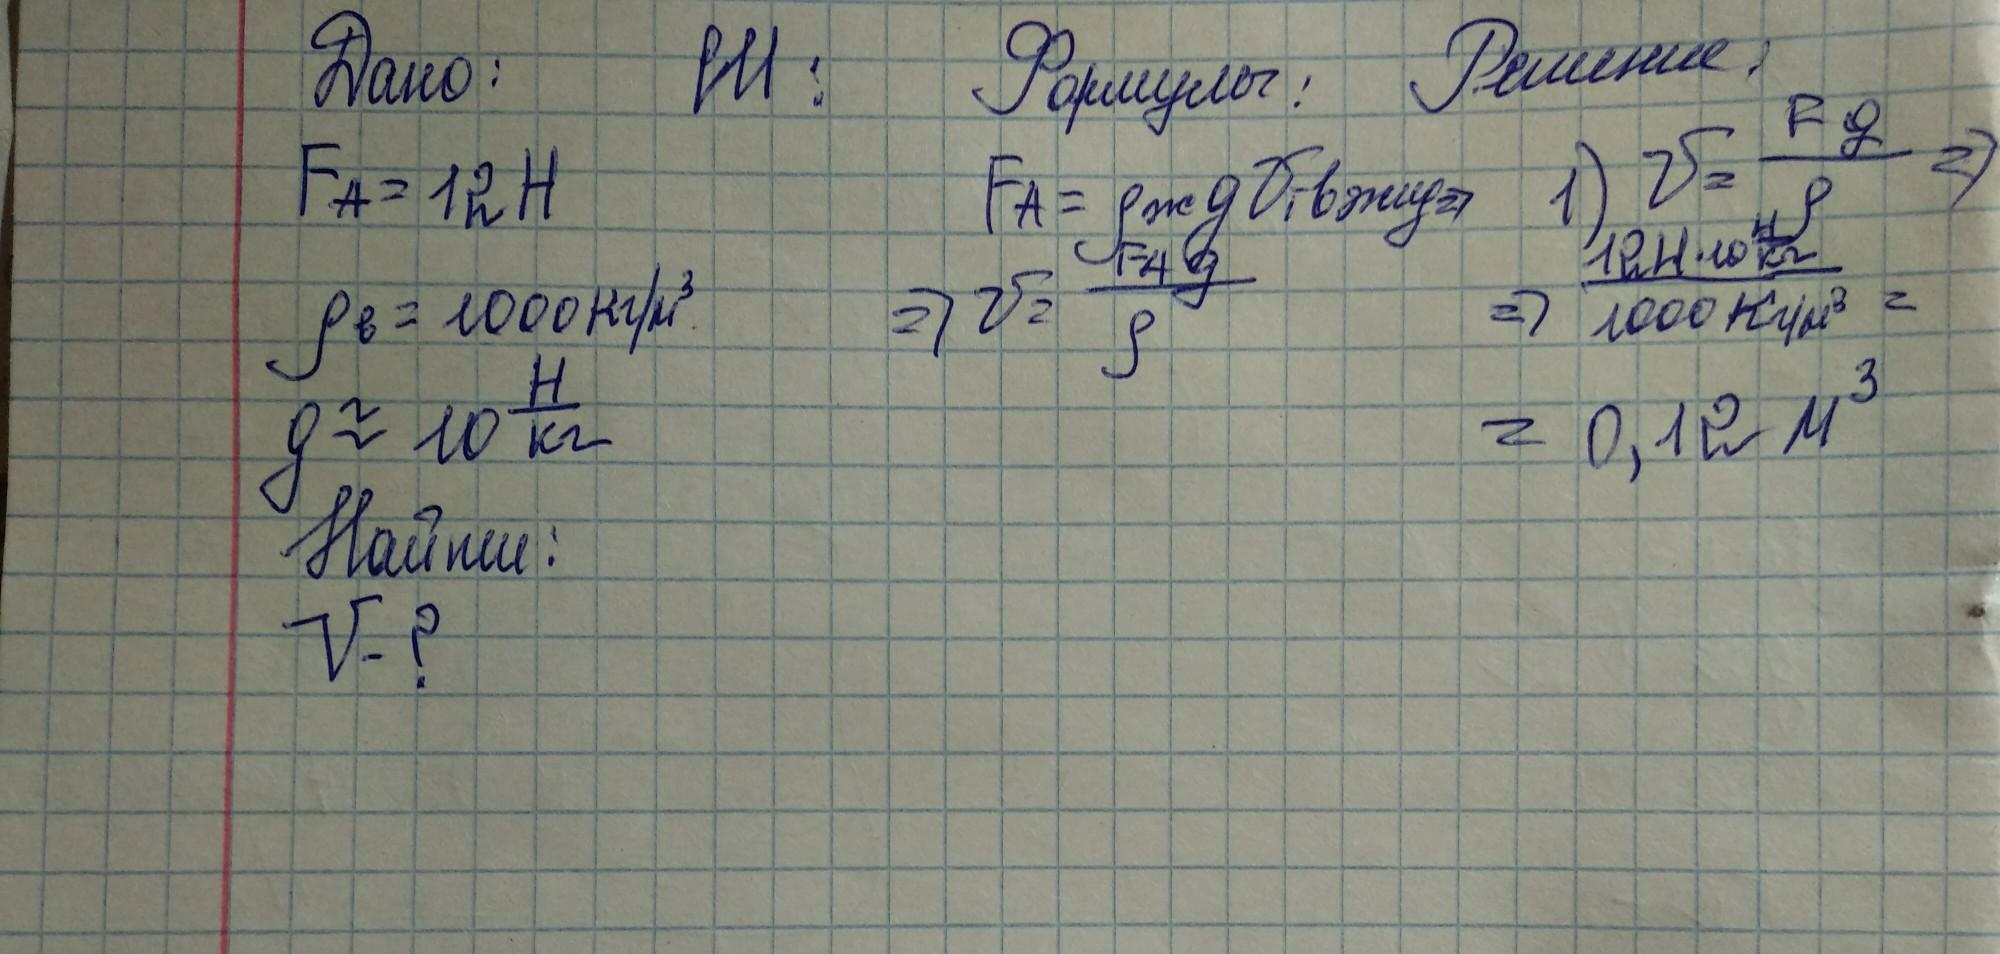 Дано: СИ: Формулы: Решение:
FА = 12Н
ρв = 1000кг/м³
g ≈ 10 Н/кг
Найти:
V - ?
FА = ρж g Vт в жид ⇒
⇒ V = FА g / ρ
1) V = F g / ρ ⇒
⇒ 12Н · 10 Н/кг / 1000 кг/м³ =
= 0,12 м³